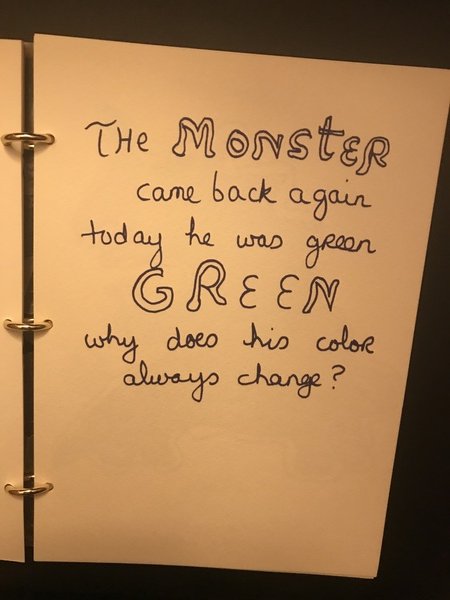 THE MONSTER
came back again
today he was green
GREEN
why does his color
always change?